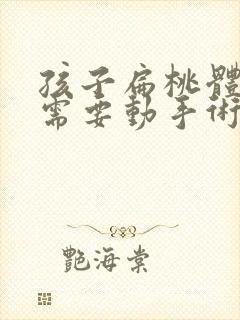 孩子扁桃體
需要動手術
艷海棠